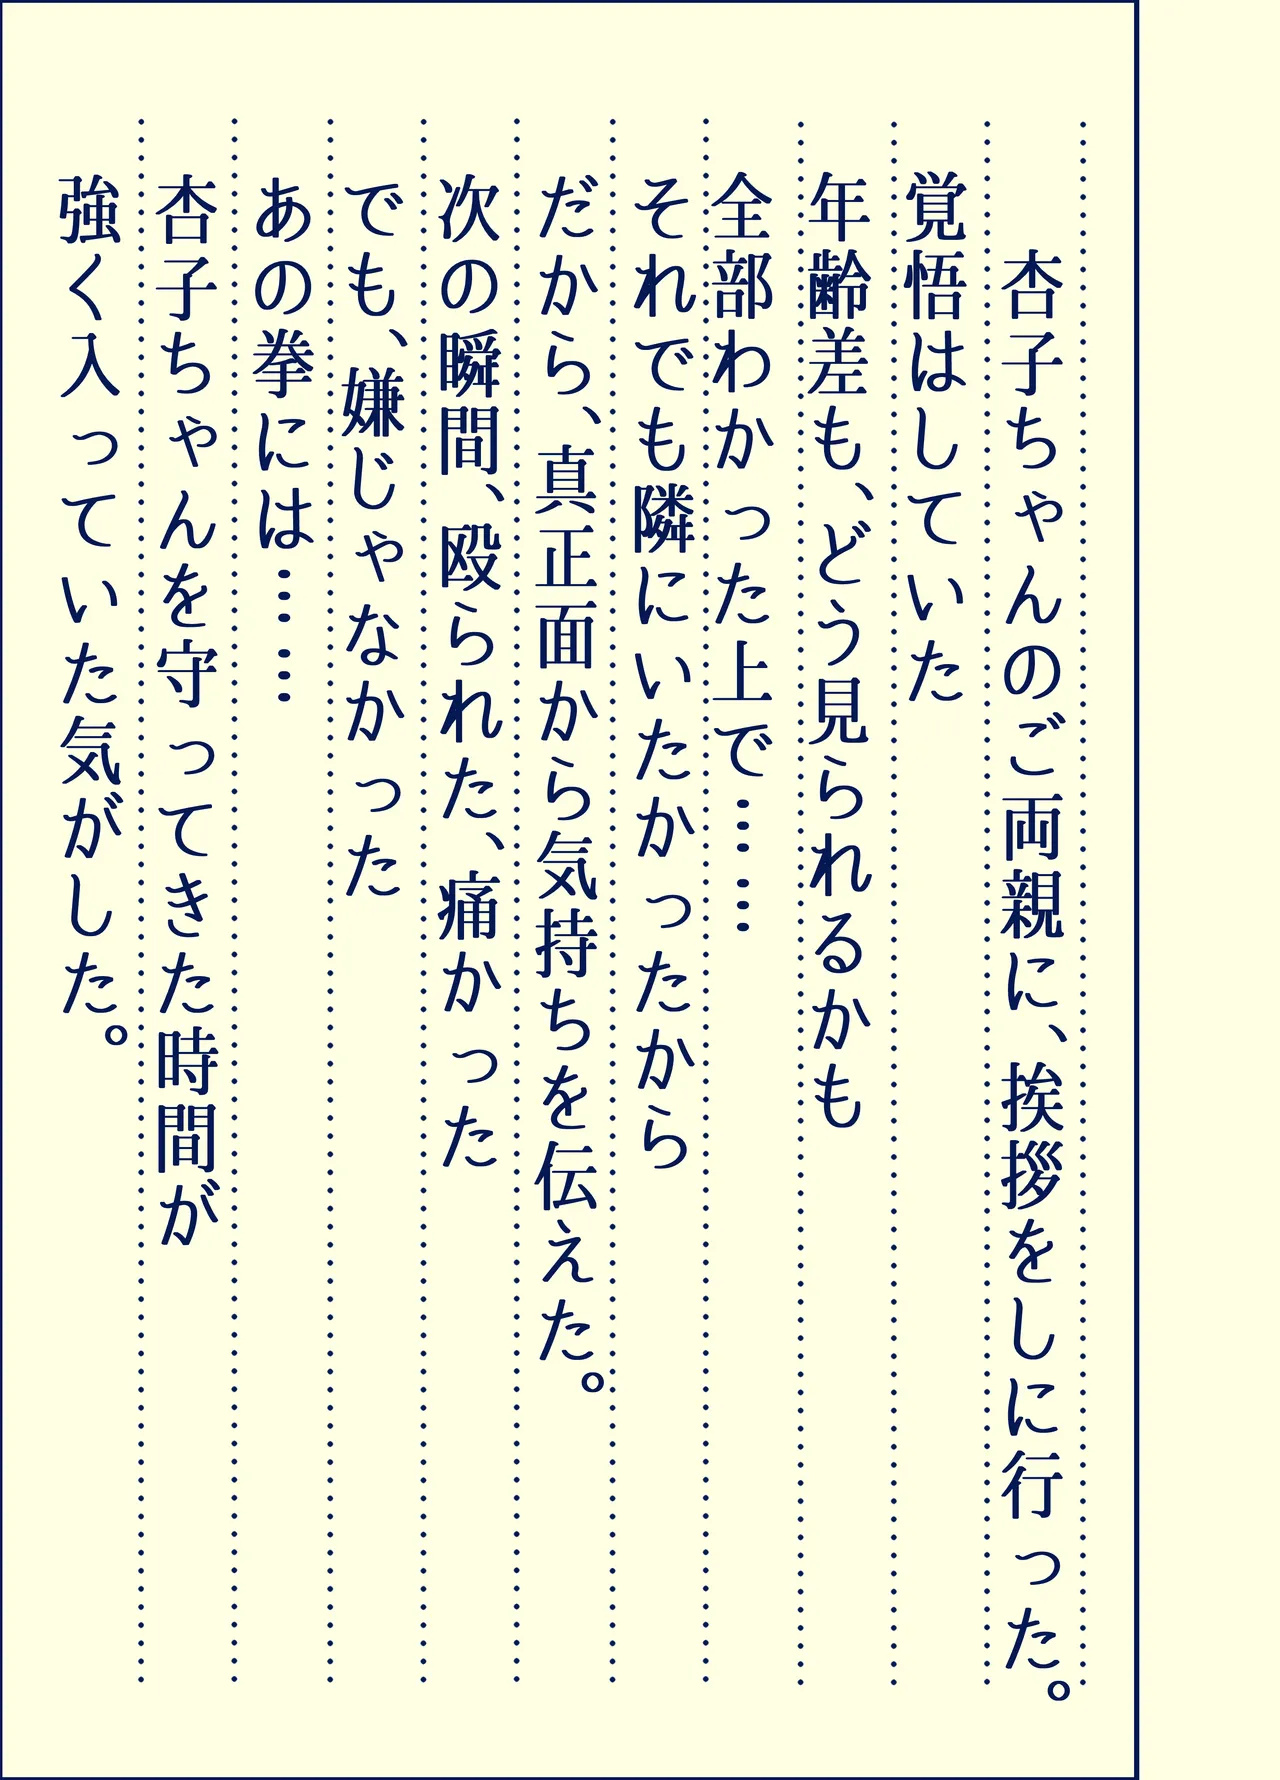 杏子ちゃんのご両親に、挨拶をしに行った。
覚悟はしていた
年齢差も、どう見られるかも
全部わかった上で……
それでも隣にいたかったから
だから、真正面から気持ちを伝えた。
次の瞬間、殴られた、痛かった
でも、嫌じゃなかった
あの拳には……
杏子ちゃんを守ってきた時間が
強く入っていた気がした。